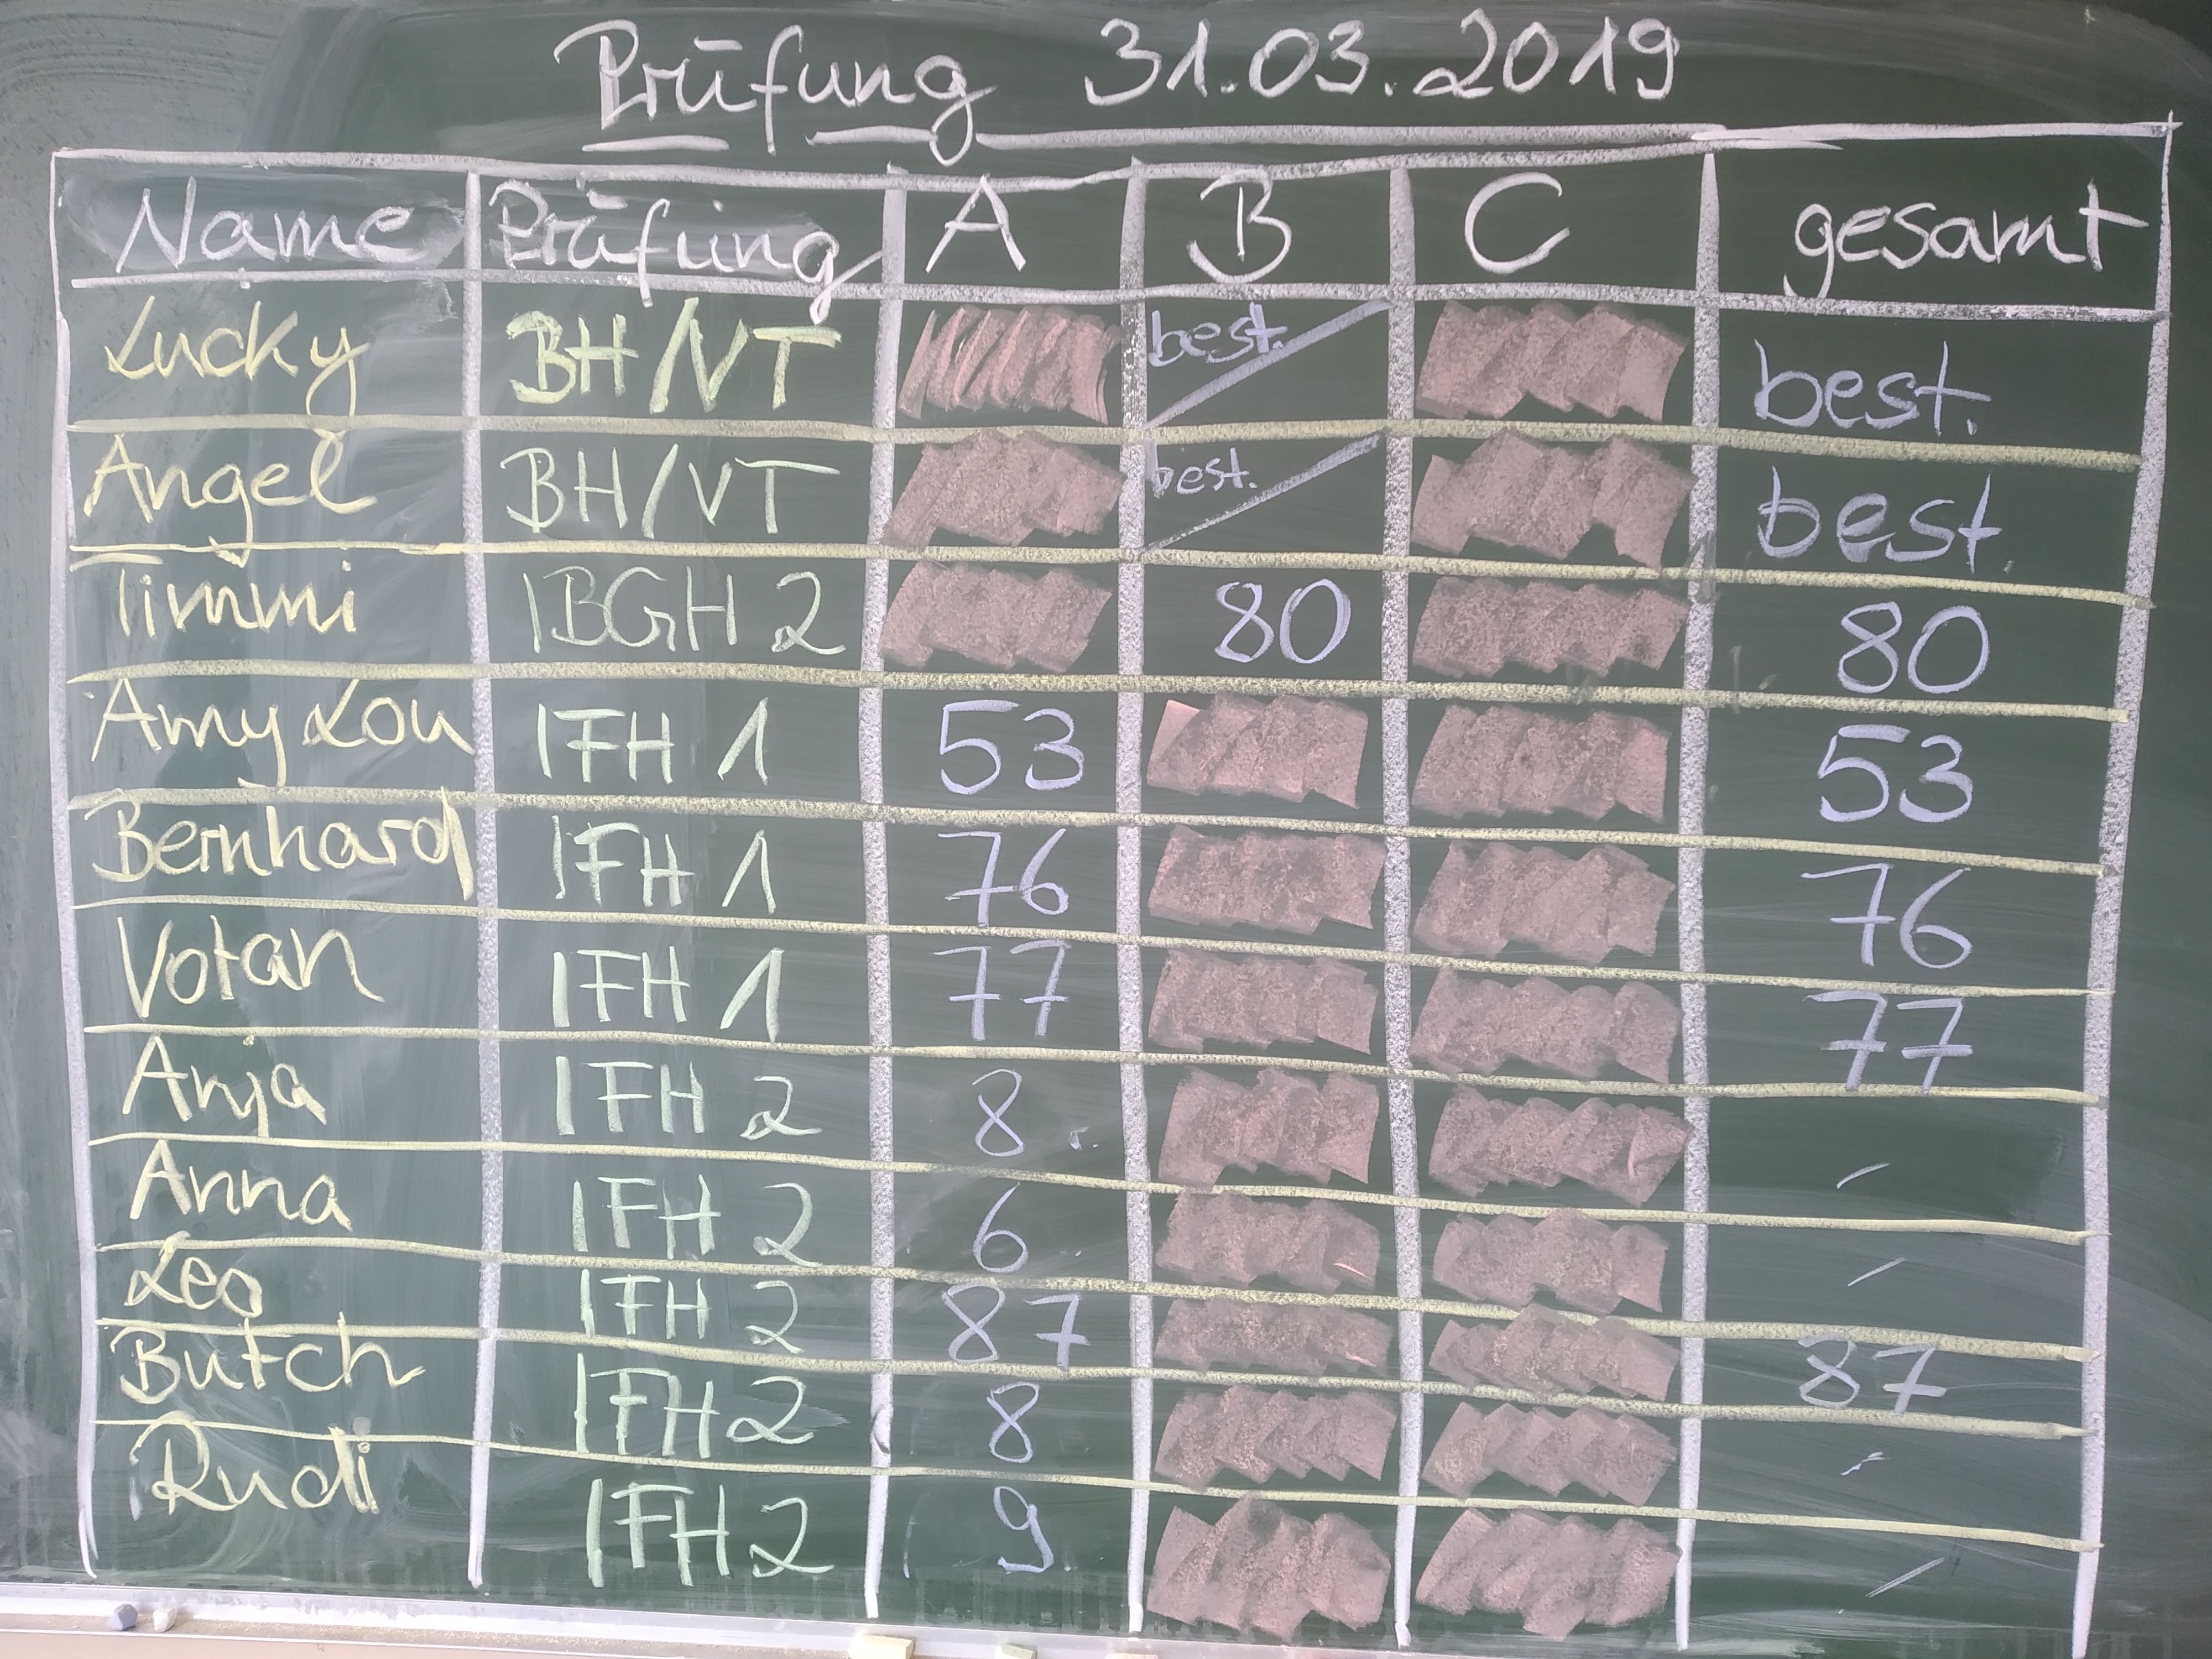 Prüfung 31.03.2019
Name Prüfung A B C gesamt
Lucky BH/VT best. best.
Angel BH/VT best. best.
Timmi IBGH 2 80 80
Amy Lou IFH 1 53 53
Bernhard IFH 1 76 76
Votan IFH 1 77 77
Anja IFH 2 8 -
Anna IFH 2 6 -
Leo IFH 2 87 87
Butch IFH 2 8 -
Rudi IFH 2 9 -